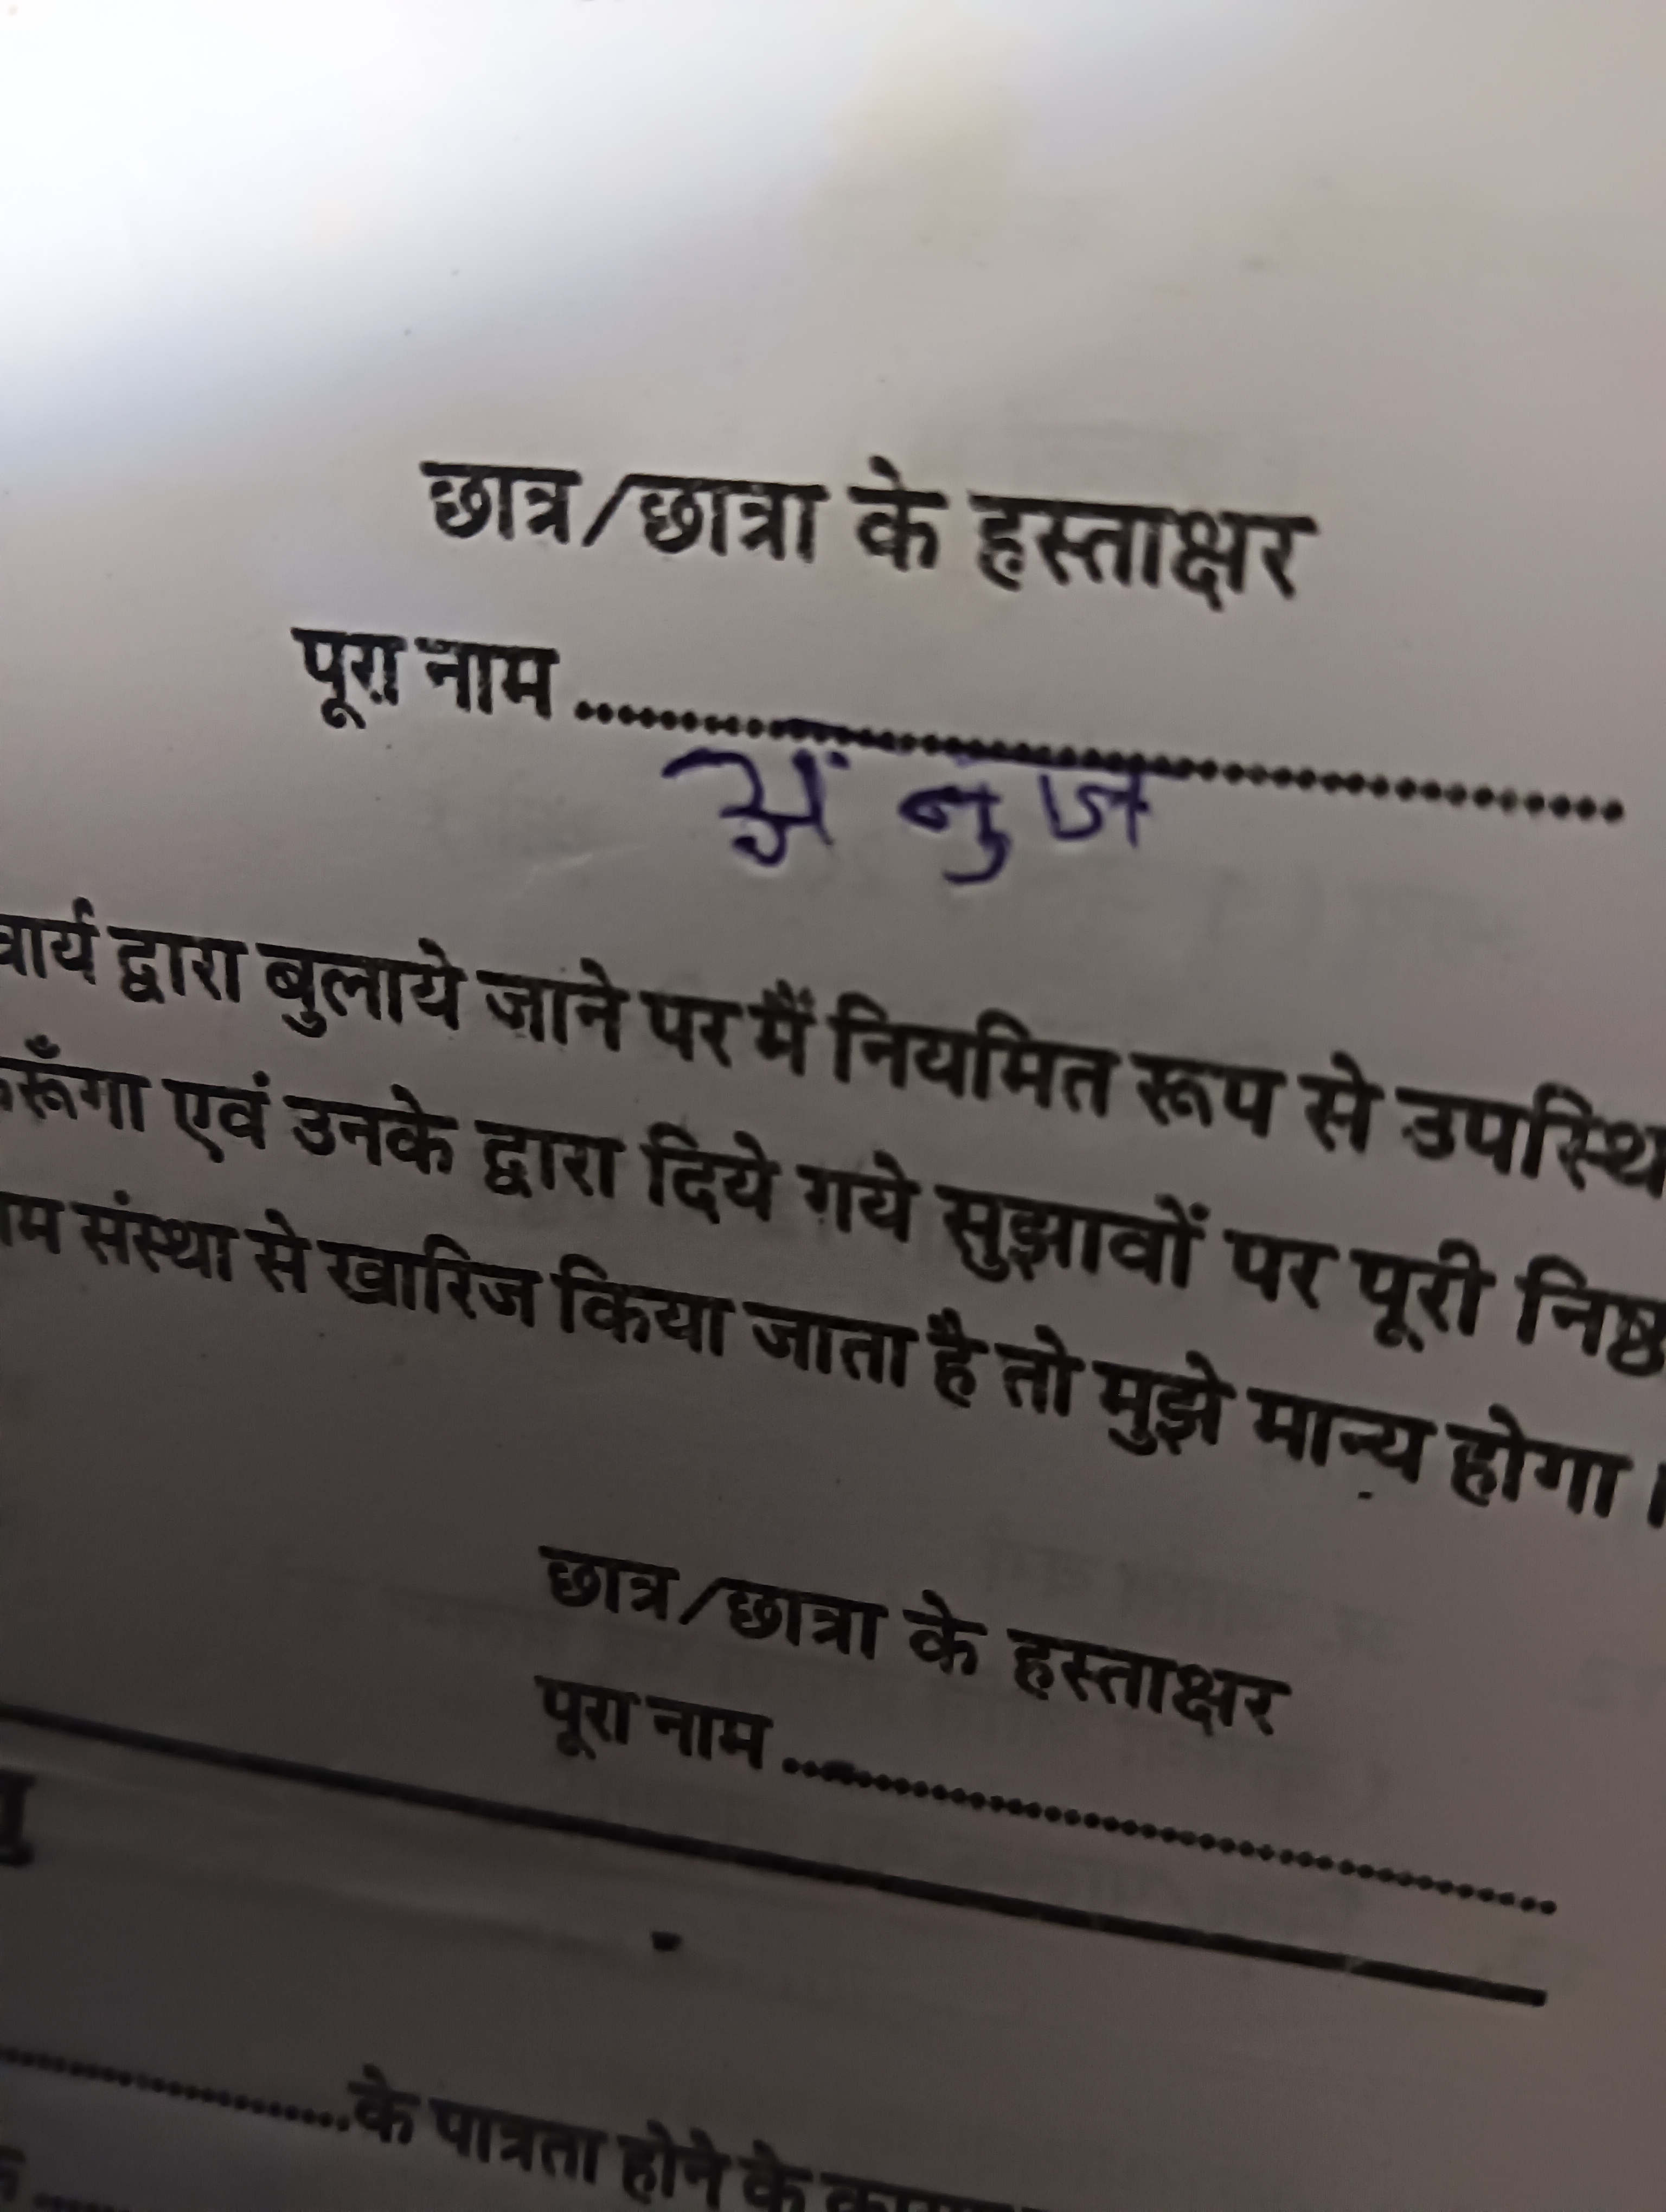 छात्र/छात्रा के हस्ताक्षर
पूरा नाम ........................................
अंनुज
द्वारा बुलाये जाने पर मैं नियमित रूप से
एवं उनके द्वारा दिये गये सुझावों पर पूरी
संस्था से खारिज किया जाता है तो मुझे मान्य होगा।
छात्र/छात्रा के हस्ताक्षर
पूरा नाम ........................................
के पात्रता होने के